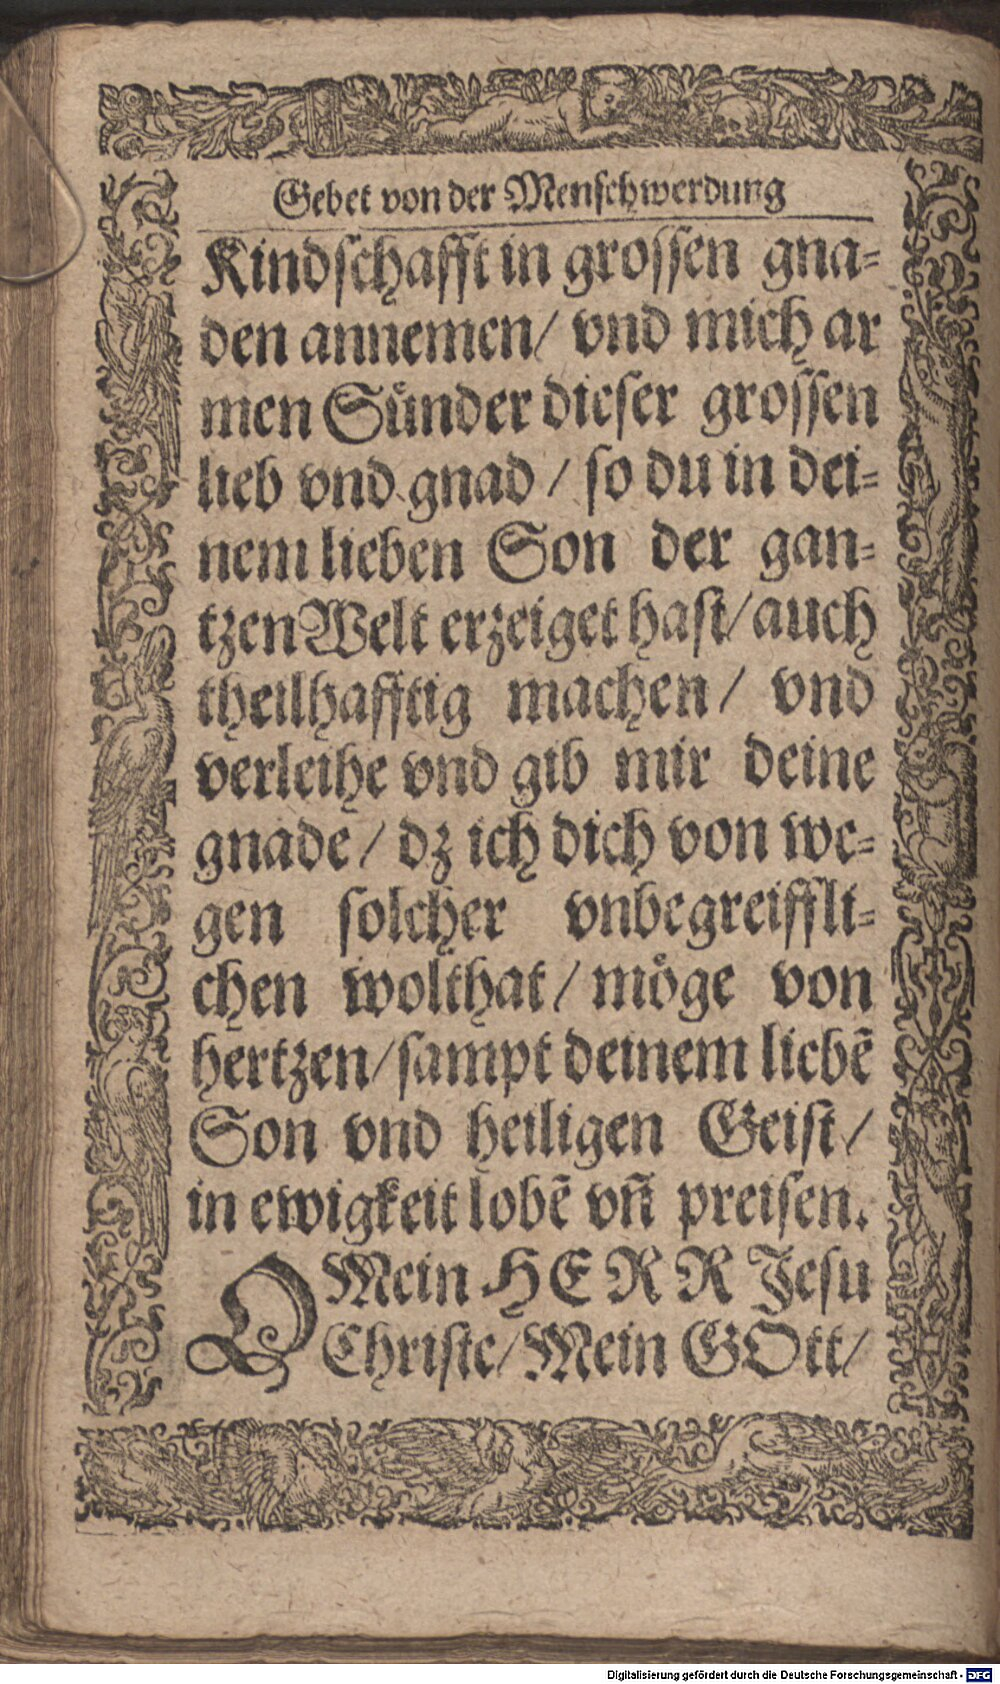 Gebet von der Menschwerdung
Kindschafft in grossen gna⸗
den annemen/ vnd mich ar
men Sünder dieser grossen
lieb vnd gnad / so du in dei⸗
nem lieben Son der gan⸗
tzen Welt erzeiget hast/ auch
theilhafftig machen / vnd
verleihe vnd gib mir deine
gnade / dz ich dich von we⸗
gen solcher vnbegreiffli⸗
chen wolthat / möge von
hertzen/ sampt deinem liebẽ
Son vnd heiligen Geist /
in ewigkeit lobẽ vñ preisen.
O Mein HERR Jesu
Christe/ Mein GOtt/
Digitalisierung gefördert durch die Deutsche Forschungsgemeinschaft - DFG